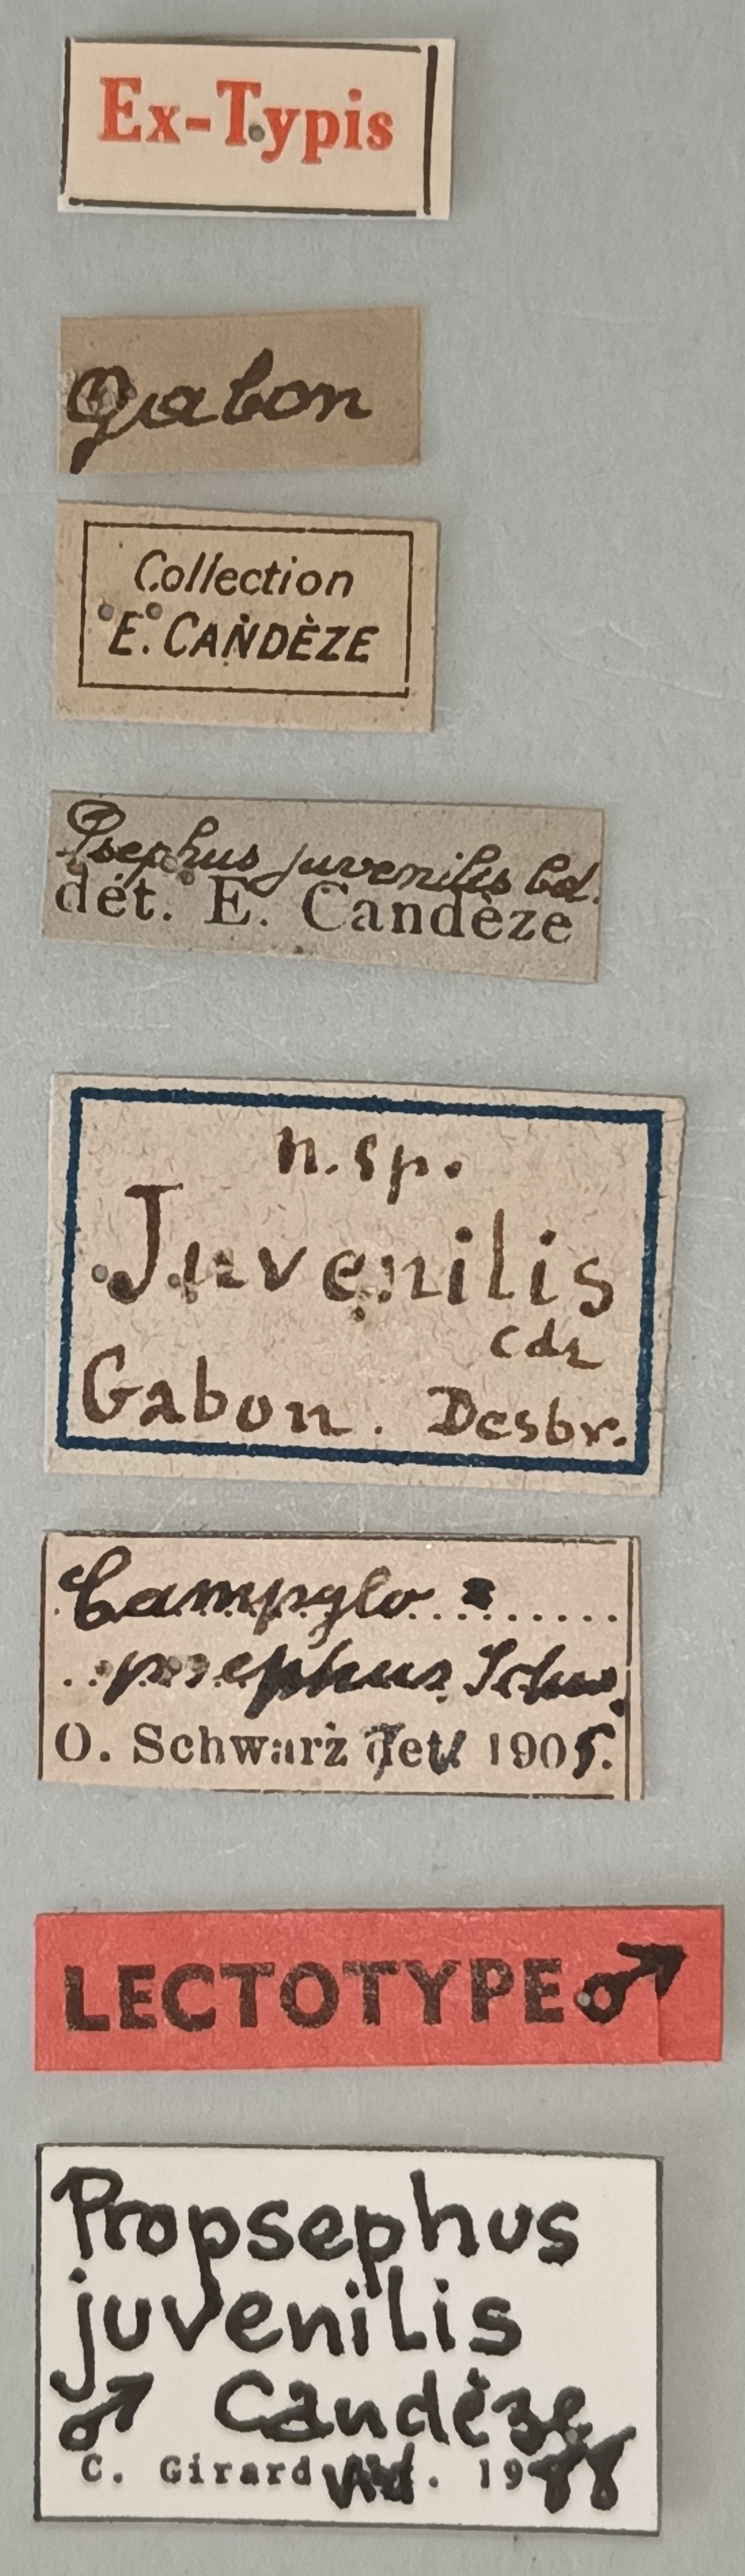 Ex-Typis
Gabon
Collection
E. CANDÈZE
Psephus juvenilis Cd.
dét. E. Candèze
n. sp.
Juvenilis
cdz
Gabon. Desbr.
Campylo=
psephus Schw.
O. Schwarz det. 1905.
LECTOTYPE ♂
Propsephus
juvenilis
♂ Candèze
C. Girard vid. 1988